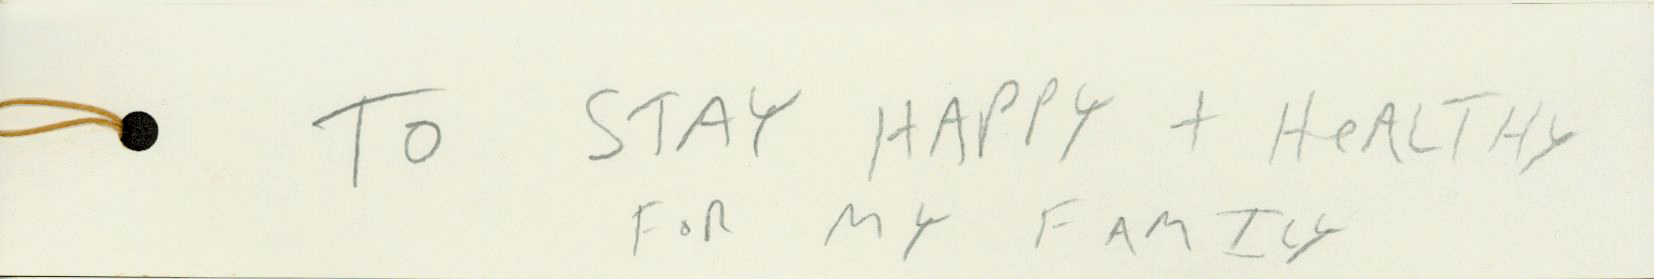 TO STAY HAPPY + HeALTHY
FOR MY FAMILY